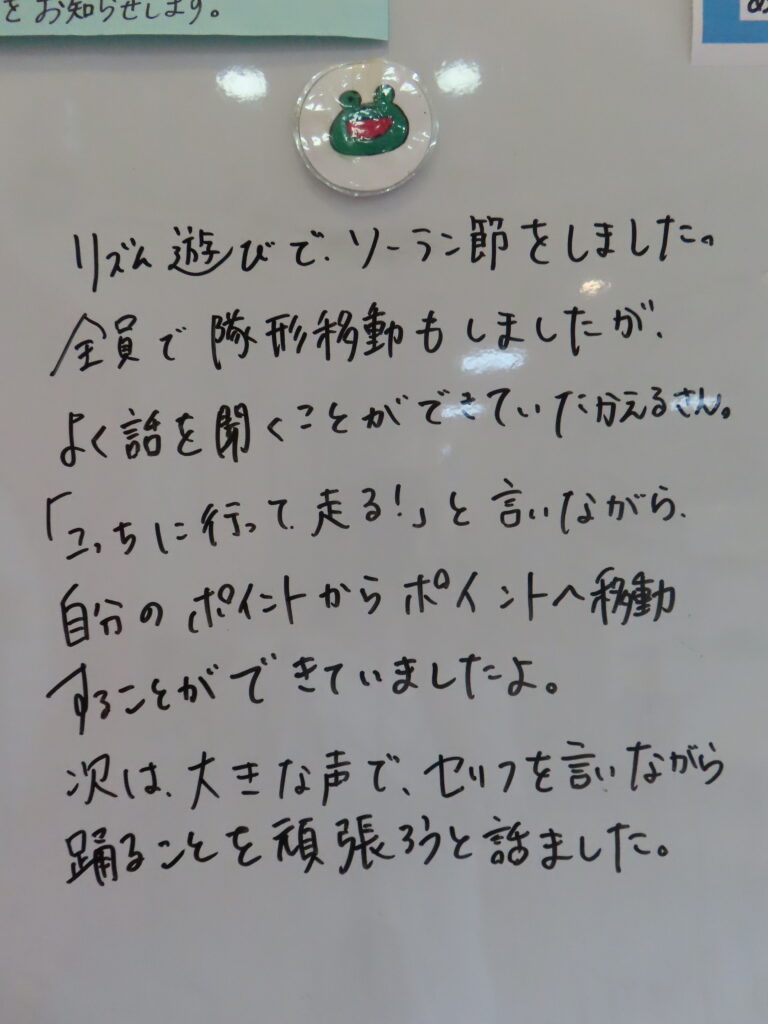 をお知らせします。
リズム遊びで、ソーラン節をしました。
全員で隊形移動もしましたが、
よく話を聞くことができていたかえるさん。
「こっちに行って、走る!」と言いながら、
自分のポイントからポイントへ移動
することができていましたよ。
次は、大きな声で、セリフを言いながら
踊ることを頑張ろうと話ました。